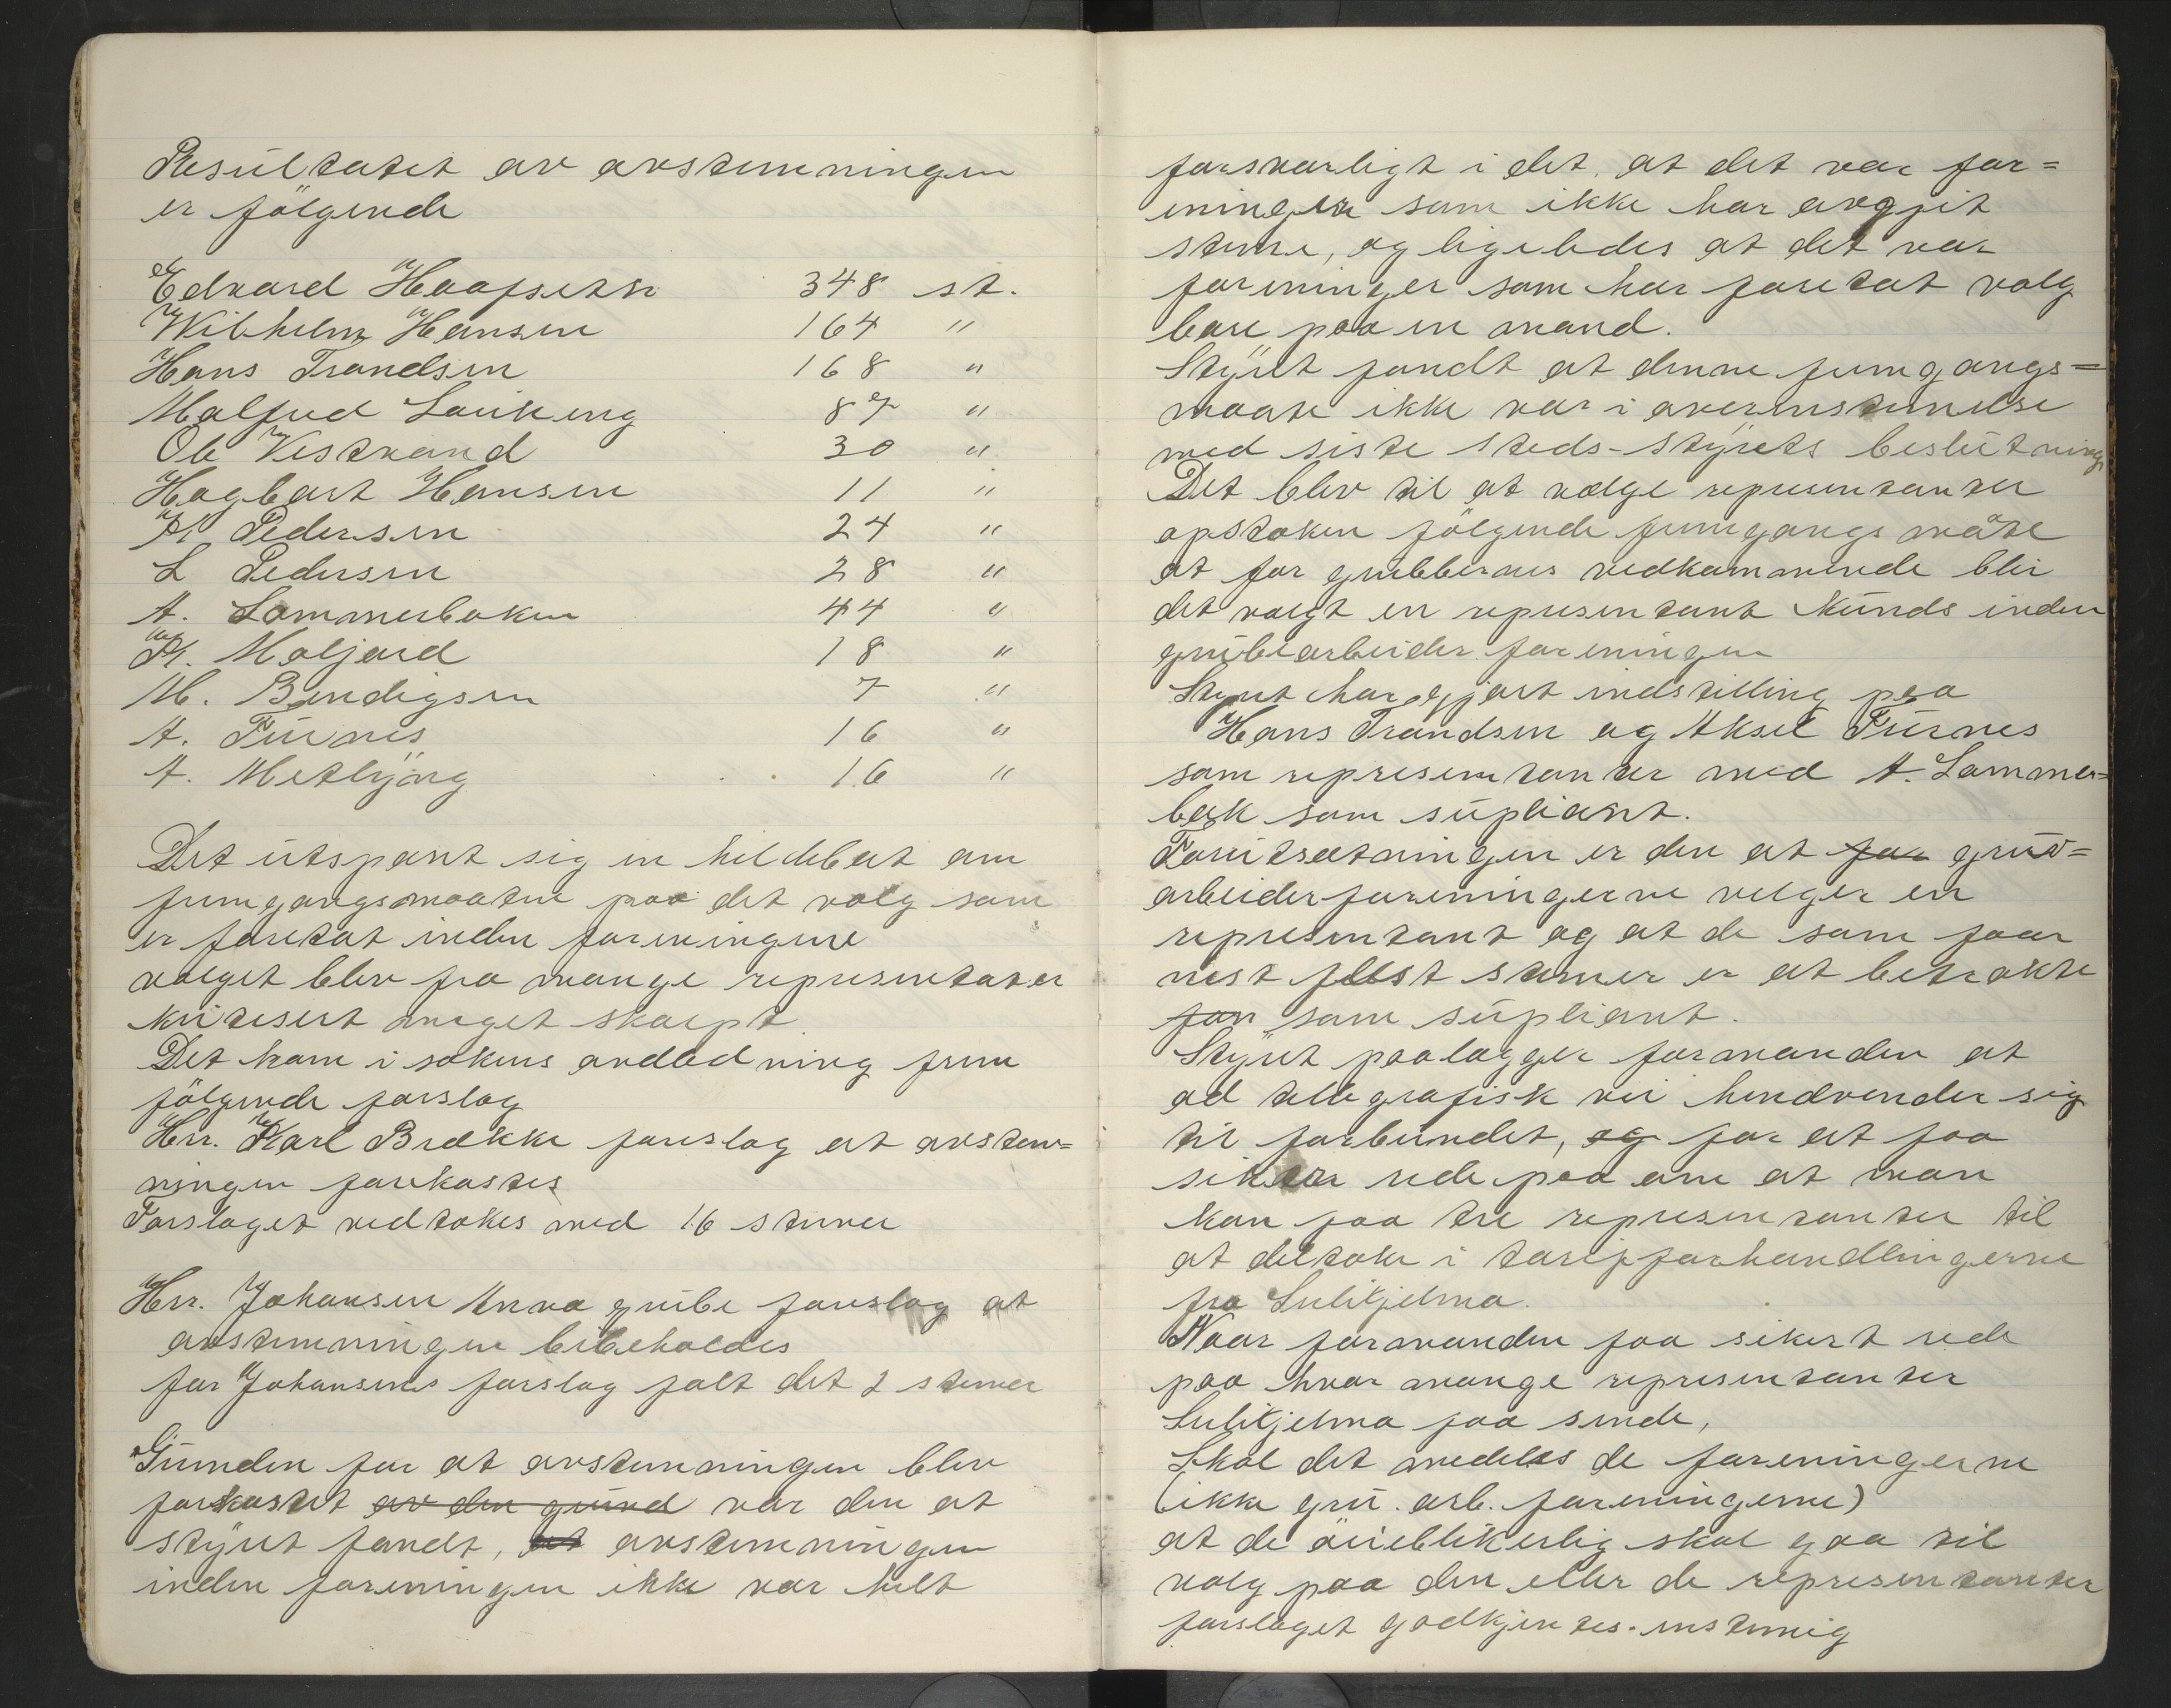 Resultatet av avstemningen
er følgende
Edvard Haafseth 348 st.
Wilhelm Hansen 164 "
Hans Trondsen 168 "
Malfred Louis eng 87 "
Ole Vestvand 30 "
Hagbart Hansen 11 "
K Pedersen 24 "
L Pedersen 28 "
A. Lommerbaken 44 "
K. Moljord 18 "
M. Bendigsen 7 "
A. Furnes 16 "
A. Metbjørg 16 "
Det utspant sig en hel debat om
fremgangsmaaten paa det valg som
er foretat inden foreningene
valget blev fra mange representater
kritisert meget skarpt
Det kom i sakens andledning frem
følgende forslag
Hrr. Karl Brække foreslog at avstem=
ningen forkastes
Forslaget vedtokes med 16 stemer
Hrr. Johansen Anna grube foreslog at
avstemningen bibeholdes
for Johansens forslag falt det 2 stemer
Grunden for at avstemningen blev
forkastet av den grund var den at
styret fandt, at avstemningen
inden foreningen ikke var helt
forsvarligt i det, at det var for=
eninger som ikke har avgjit
steme, og ligeledes at det var
foreninger som har foretat valg
bare paa en mand.
Styret fandt at denne fremgangs=
maate ikke var i averenstemelse
med siste steds-styrets beslutning
Det blev til at velge representanter
opstaken følgende fremgangs måte
at for grubbernes vedkommende blir
det valgt en representant kunds inden
grubearbeider foreningen
Styret har gjort indstilling paa
Hans Trondsen og Aksel Furnes
som representanter med A. Lommer=
bak som supliant.
Forutsætningen er den at for gru=
arbeiderforeningerne velger en
representant og at de som faar
nest flest stemer er at betrakte
for som supliant.
Styret paalægger formanden at
ad tellegrafisk vei hendvender sig
til forbundet, og for at faa
sikker rede paa om at man
kan faa tre representanter til
at deltake i tarifforhandlingerne
fra Sulitjelma.
Naar formanden faa sikert rede
paa hvor mange representanter
Sulitjelma faa sende,
Skal det medeles de foreningerne
(ikke gru. arb. foreningerne)
at de øieblikerlig skal gaa til
valg paa den eller de representanter
forslaget godkjentes. enstemig